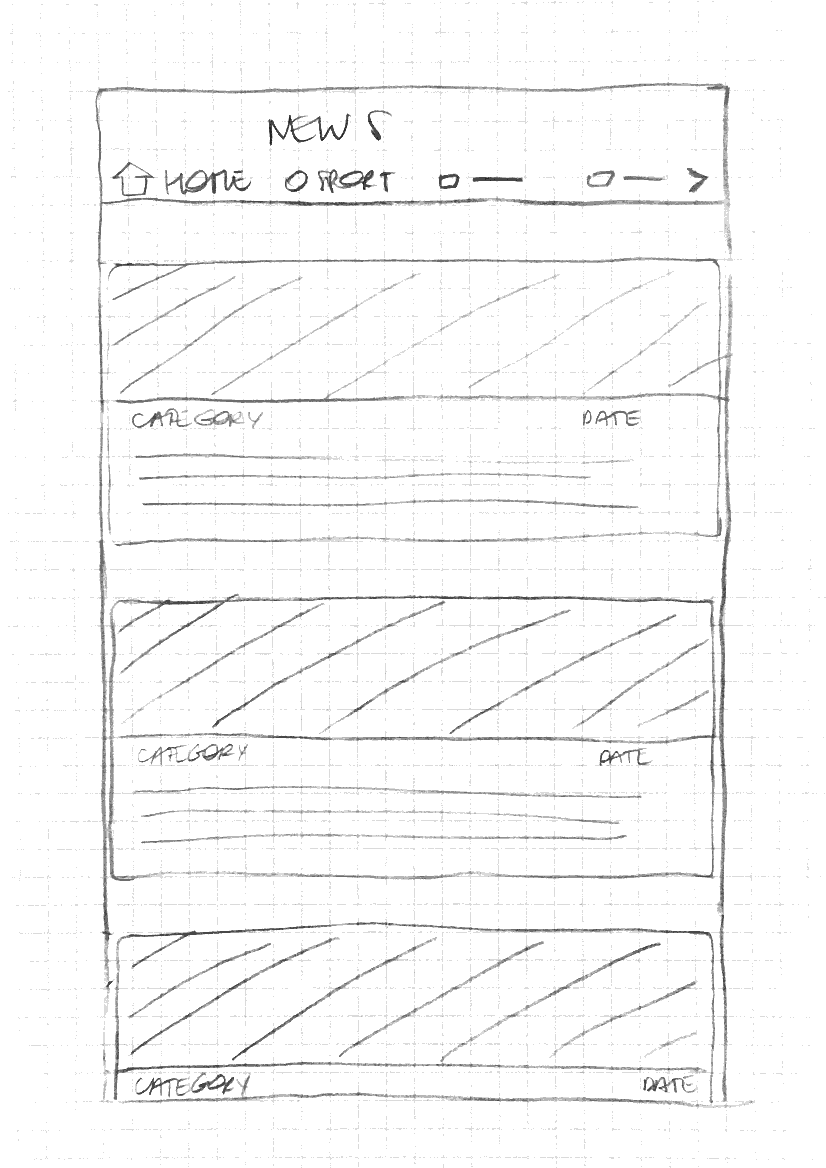 NEWS
HOME SPORT >
CATEGORY DATE
CATEGORY DATE
CATEGORY DATE